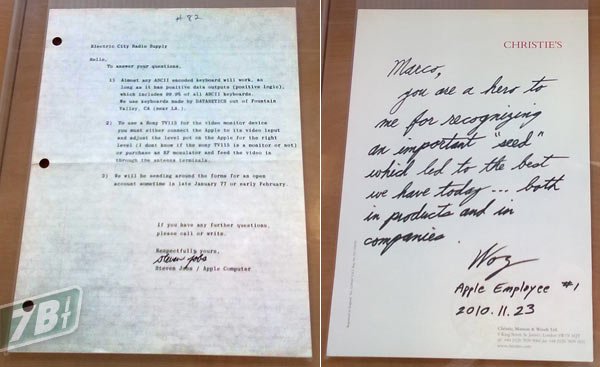 # 82
Electric City Radio Supply
Hello,
To answer your questions.
1) Almost any ASCII encoded keyboard will work, as
long as it has positive data outputs (positive logic),
which includes 99.9% of all ASCII keyboards.
We use keyboards made by DATANETICS out of Fountain
Valley, CA (near LA.).
2) To use a Sony TV115 for the video monitor device
you must either connect the Apple to its video input
and adjust the level pot on the Apple for the right
level (I dont know if the sony TV115 is a monitor or not)
or purchase an RF modulator and feed the video in
through the antenna terminals.
3) We will be sending around the forms for an open
account sometime in late January 77 or early February.
If you have any further questions,
please call or write.
Respectfully yours,
steven jobs
Steven Jobs / Apple Computer
7BIT
CHRISTIE'S
Marco,
you are a hero to
me for recognizing
an important "seed"
which led to the best
we have today ... both
in products and in
companies.
Woz
Apple Employee #1
2010.11.23
Christie, Manson & Woods Ltd.
8 King Street, St. James's, London SW1Y 6QT
www.christies.com